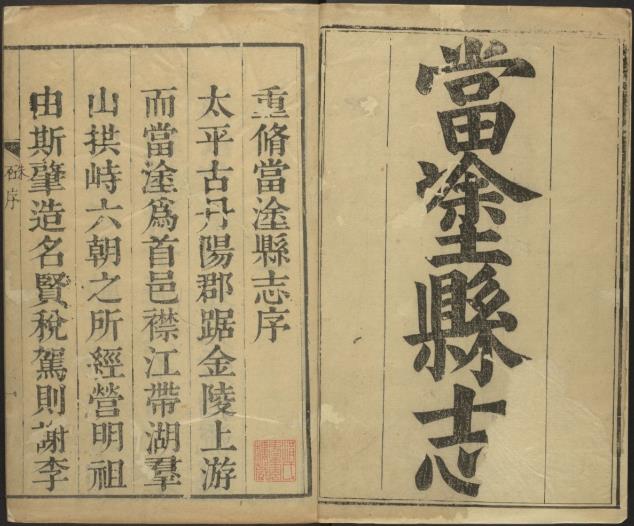 當塗縣志
重脩當塗縣志序
太平古丹陽郡踞金陵上游
而當塗爲首邑襟江帶湖羣
山拱峙六朝之所經營明祖
由斯肇造名賢稅駕則謝李
序